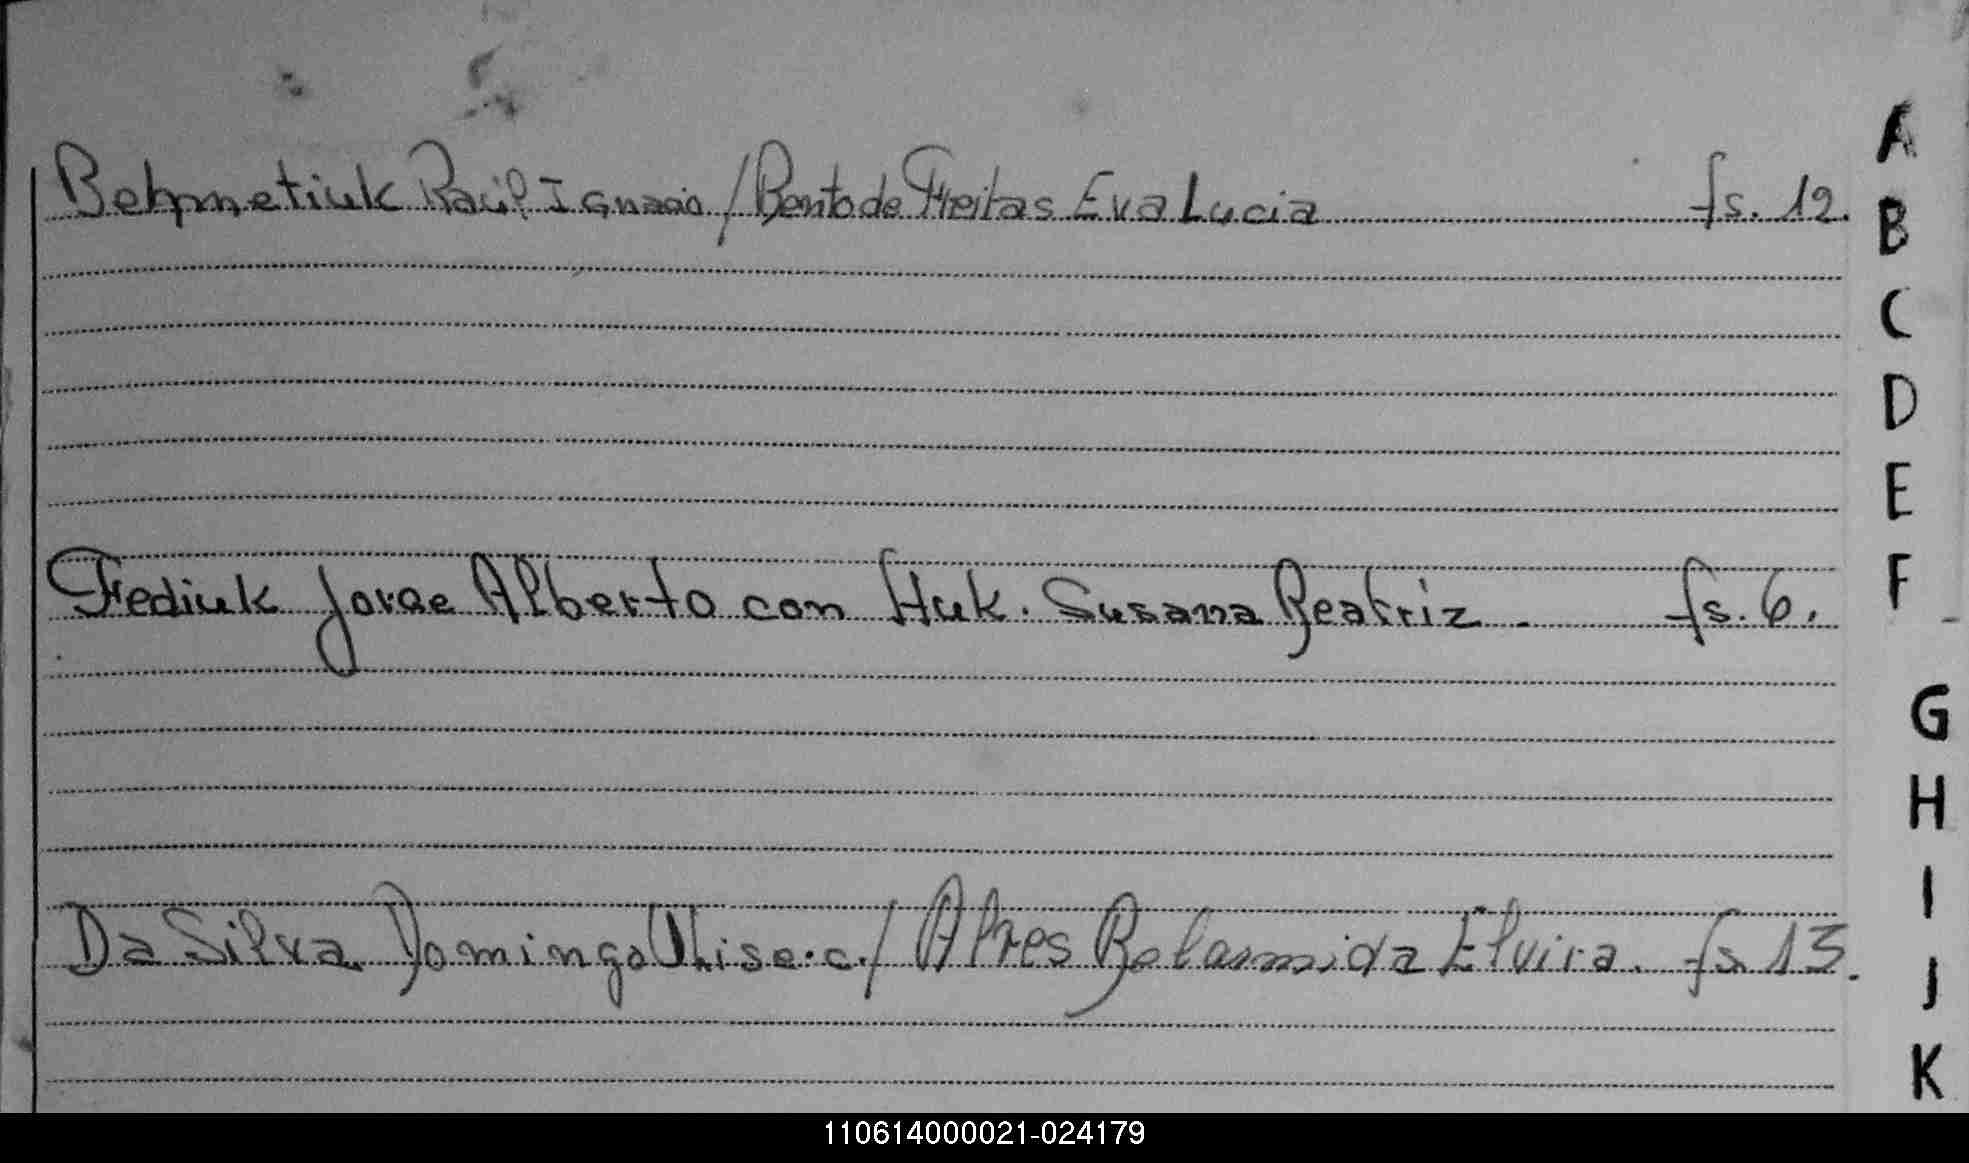 Behmetiuk Raúl Ignacio / Bento de Freitas Eva Lucia fs. 12.
Fediuk Jorge Alberto con Huk. Susana Beatriz. fs. 6.
Da Silva Domingo c./ Alves Elvira. fs 13.
A
B
C
D
E
F
G
H
I
J
K
110614000021-024179